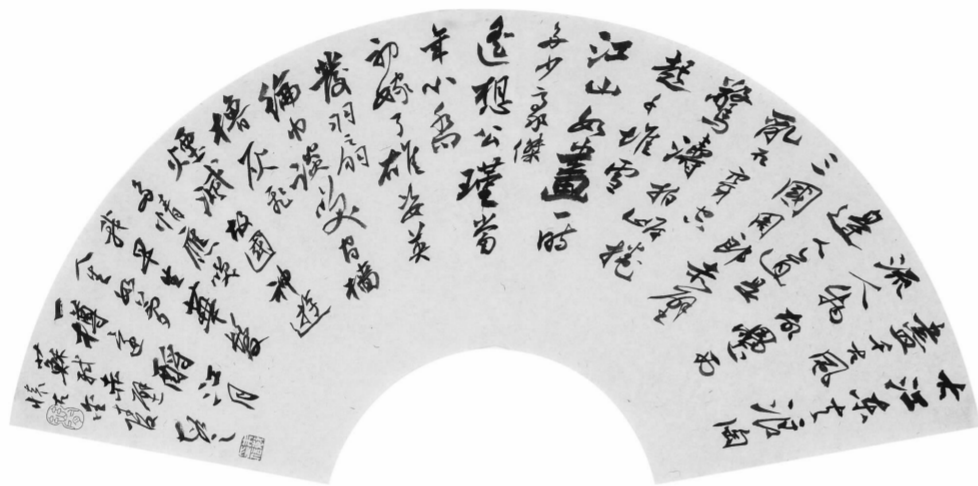 大江東去浪淘
盡千古風
流人物故壘西
邊人道是
三國周郎赤壁
亂石穿空
驚濤拍岸捲
起千堆雪
江山如畫一時
多少豪傑
遙想公瑾當
年小喬
初嫁了雄姿英
發羽扇
綸巾談笑間檣
櫓灰飛
煙滅故國神遊
多情應笑
我早生華髮
人生如夢
一樽還酹江月
蘇軾
赤壁
懷古